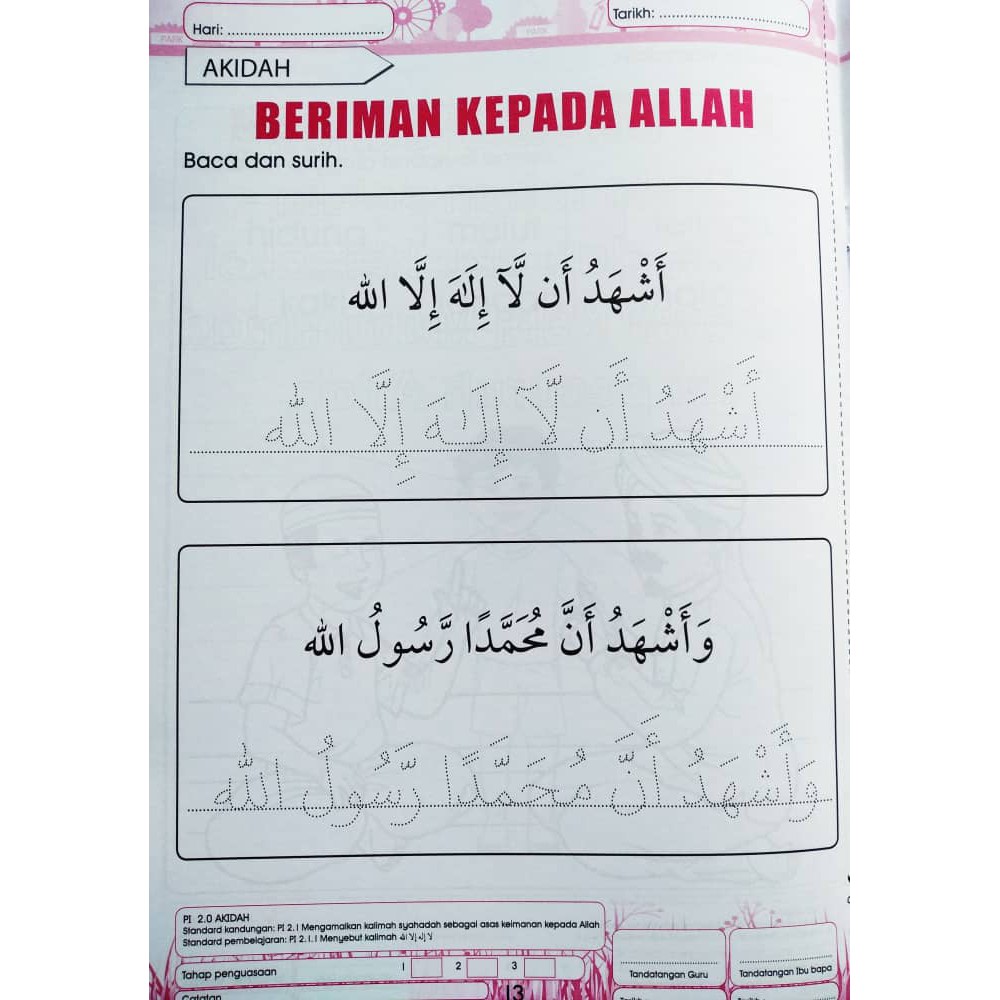 Hari:
Tarikh:
PARK
PARK
AKIDAH
BERIMAN KEPADA ALLAH
Baca dan surih.
أَشْهَدُ أَن لَّآ إِلَٰهَ إِلَّا الله
أَشْهَدُ أَن لَّآ إِلَٰهَ إِلَّا الله
وَأَشْهَدُ أَنَّ مُحَمَّدًا رَّسُولُ الله
وَأَشْهَدُ أَنَّ مُحَمَّدًا رَّسُولُ الله
PI 2.0 AKIDAH
Standard kandungan: PI 2.1 Mengamalkan kalimah syahadah sebagai asas keimanan kepada Allah
Standard pembelajaran: PI 2.1.1 Menyebut kalimah لا إله إلا الله
Tahap penguasaan 1 2 3
Tandatangan Guru
Tandatangan Ibu bapa
Catatan
13
Tarikh:
Tarikh: